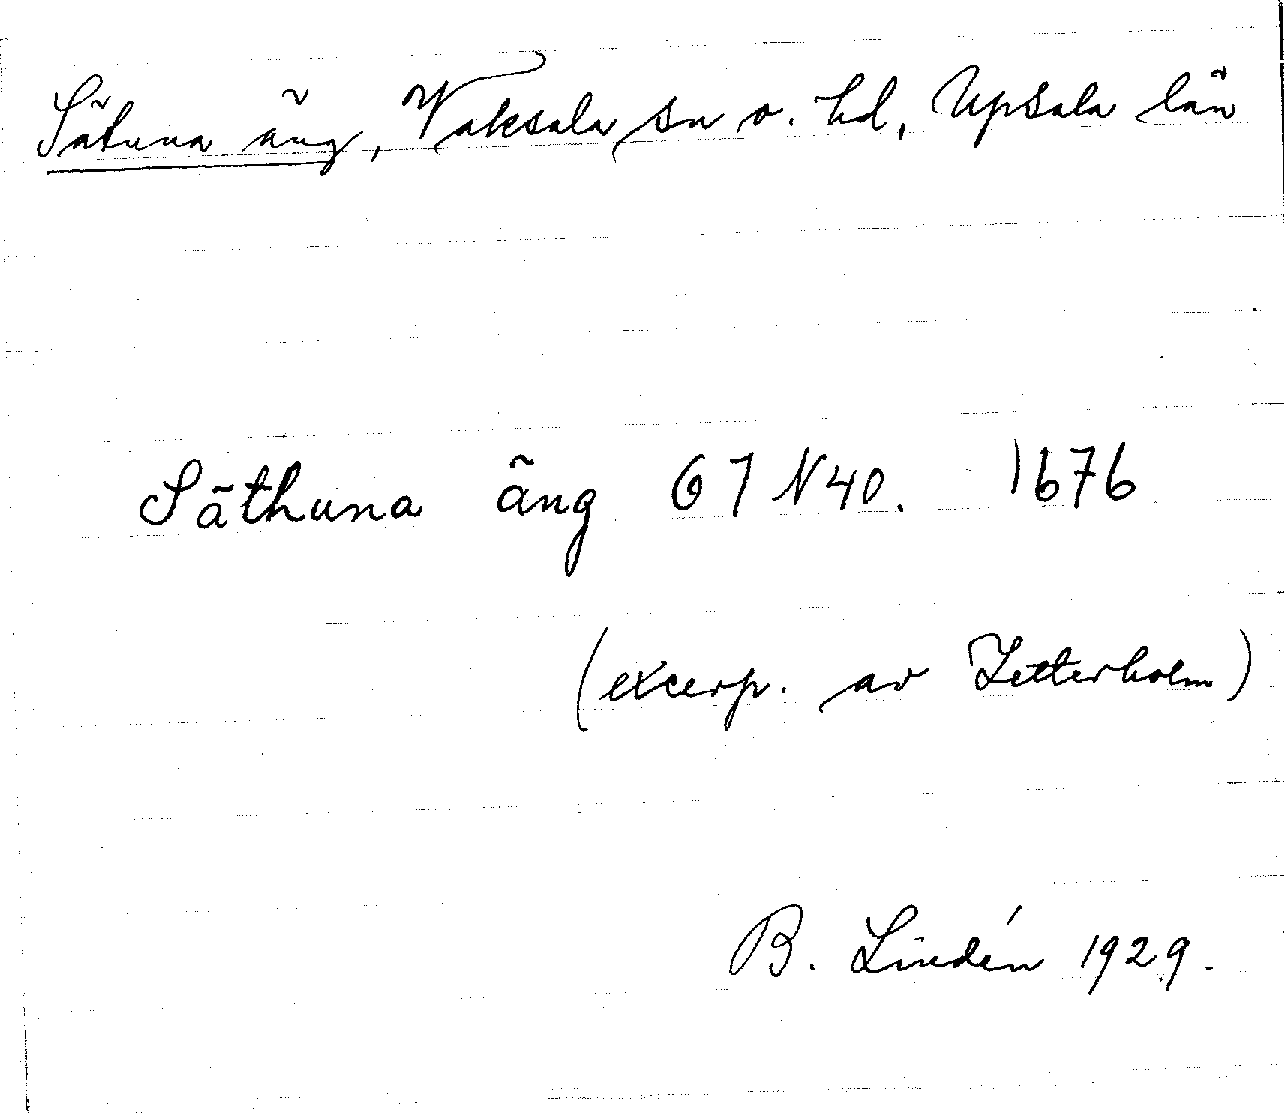 Sätuna äng, Vaksala sn o. hd, Upsala län
Säthuna äng G7 N40. 1676
(excerp. av Zetterholm)
B. Lindén 1929.